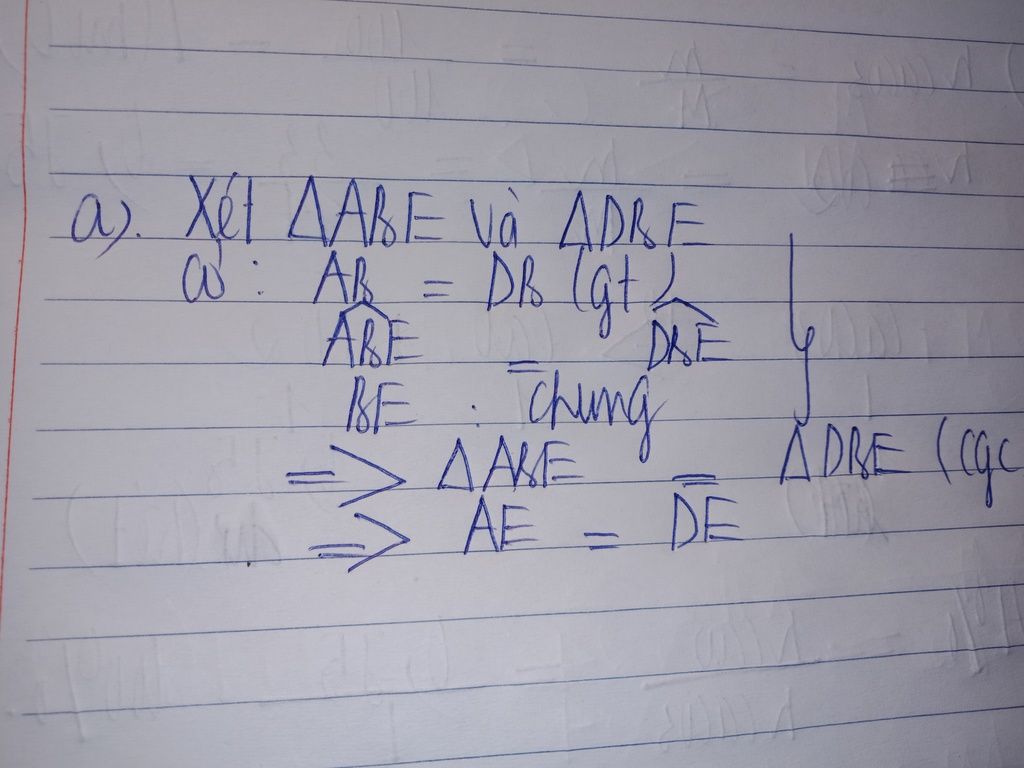 a). Xét ΔABE và ΔDBE
có: AB = DB (gt)
ABE = DBE
BE : chung
=> ΔABE = ΔDBE (cgc
=> AE = DE